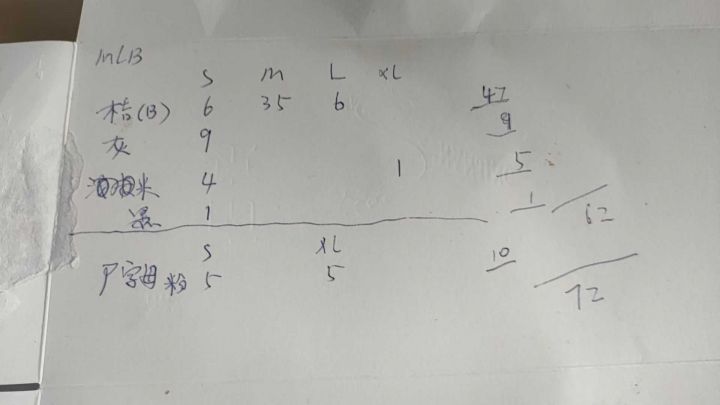 MLB
S M L XL
桔(B) 6 35 6 47
灰 9 9
米 4 1 5
黑 1 1 62
S XL
P字母粉 5 5 10
72